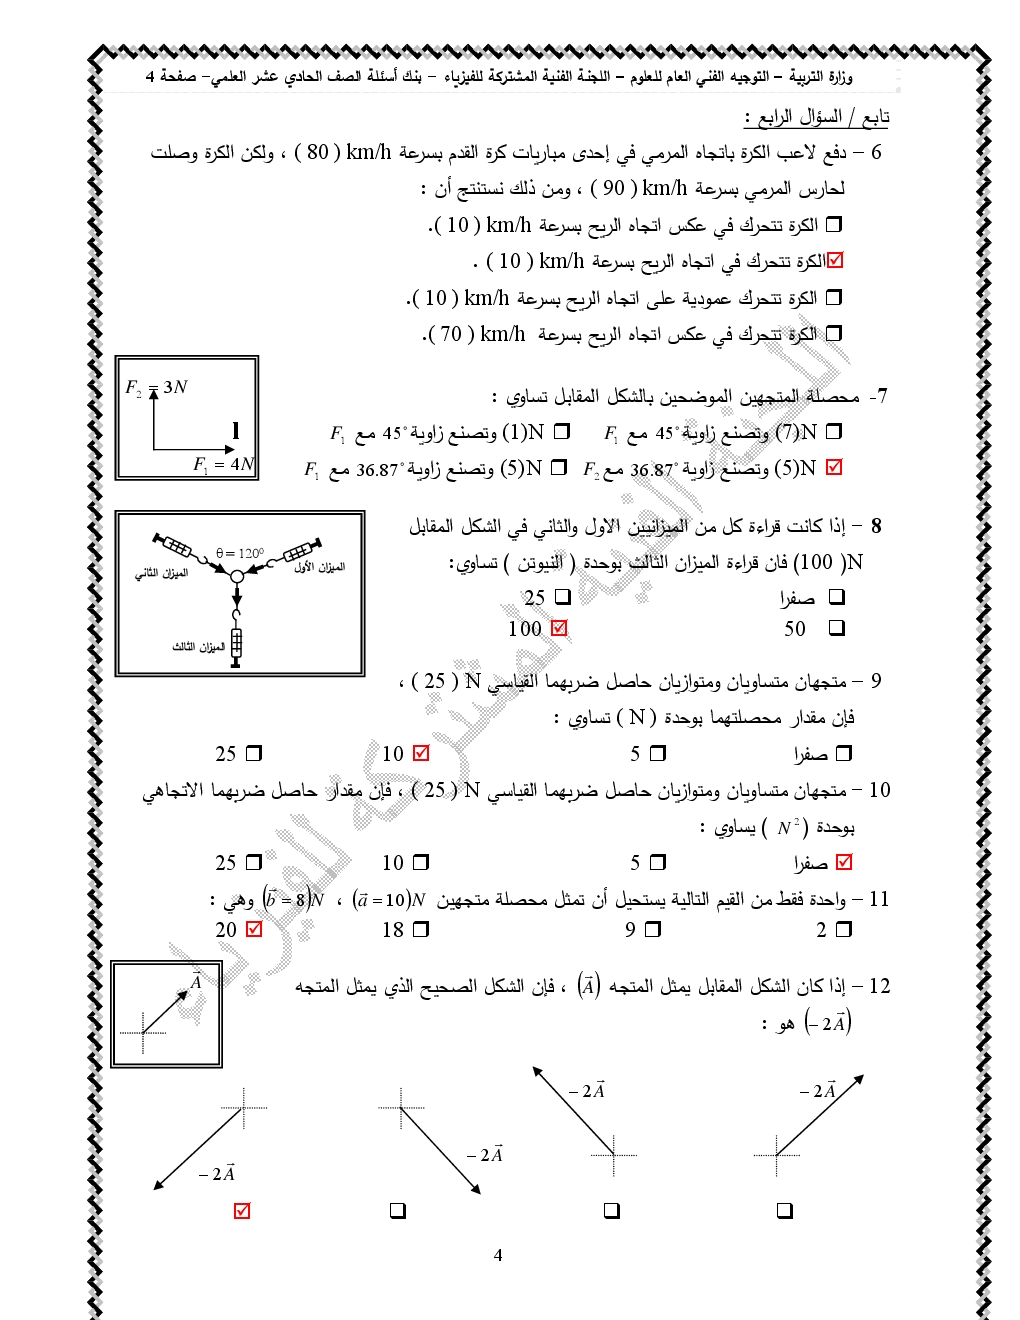 وزارة التربية – التوجيه الفني العام للعلوم – اللجنة الفنية المشتركة للفيزياء – بنك أسئلة الصف الحادي عشر العلمي– صفحة 4
تابع / السؤال الرابع :
6 – دفع لاعب الكرة باتجاه المرمي في إحدى مباريات كرة القدم بسرعة km/h ( 80 ) ، ولكن الكرة وصلت
لحارس المرمي بسرعة km/h ( 90 ) ، ومن ذلك نستنتج أن :
❒ الكرة تتحرك في عكس اتجاه الريح بسرعة km/h ( 10 ).
☑الكرة تتحرك في اتجاه الريح بسرعة km/h ( 10 ) .
❒ الكرة تتحرك عمودية على اتجاه الريح بسرعة km/h ( 10 ).
❒ الكرة تتحرك في عكس اتجاه الريح بسرعة km/h ( 70 ).
F₂ = 3N
l
F₁ = 4N
7- محصلة المتجهين الموضحين بالشكل المقابل تساوي :
❒ N(7) وتصنع زاوية 45° مع F₁ ❒ N(1) وتصنع زاوية 45° مع F₁
☑ N(5) وتصنع زاوية 36.87° مع F₂ ❒ N(5) وتصنع زاوية 36.87° مع F₁
8 – إذا كانت قراءة كل من الميزانيين الاول والثاني في الشكل المقابل
N( 100) فان قراءة الميزان الثالث بوحدة ( النيوتن ) تساوي:
❑ صفرا ❑ 25
❑ 50 ☑ 100
θ = 120⁰
الميزان الأول
الميزان الثاني
الميزان الثالث
9 – متجهان متساويان ومتوازيان حاصل ضربهما القياسي N ( 25 ) ،
فإن مقدار محصلتهما بوحدة ( N ) تساوي :
❒ صفرا ❒ 5 ☑ 10 ❒ 25
10 – متجهان متساويان ومتوازيان حاصل ضربهما القياسي N ( 25 ) ، فإن مقدار حاصل ضربهما الاتجاهي
بوحدة ( N² ) يساوي :
☑ صفرا ❒ 5 ❒ 10 ❒ 25
11 – واحدة فقط من القيم التالية يستحيل أن تمثل محصلة متجهين (a⃗ = 10)N ، (b⃗ = 8)N وهي :
❒ 2 ❒ 9 ❒ 18 ☑ 20
12 – إذا كان الشكل المقابل يمثل المتجه (A⃗) ، فإن الشكل الصحيح الذي يمثل المتجه
(– 2A⃗) هو :
A⃗
– 2A⃗
– 2A⃗
– 2A⃗
– 2A⃗
❑ ❑ ❑ ☑
4
اللجنة الفنية المشتركة للفيزياء